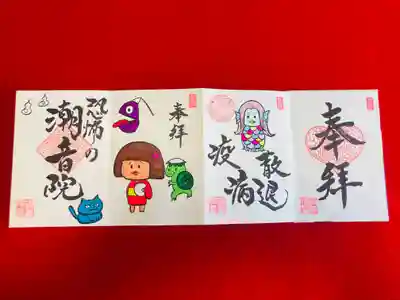 奉拝
疫病
散退
奉拝
恐怖の
潮音院